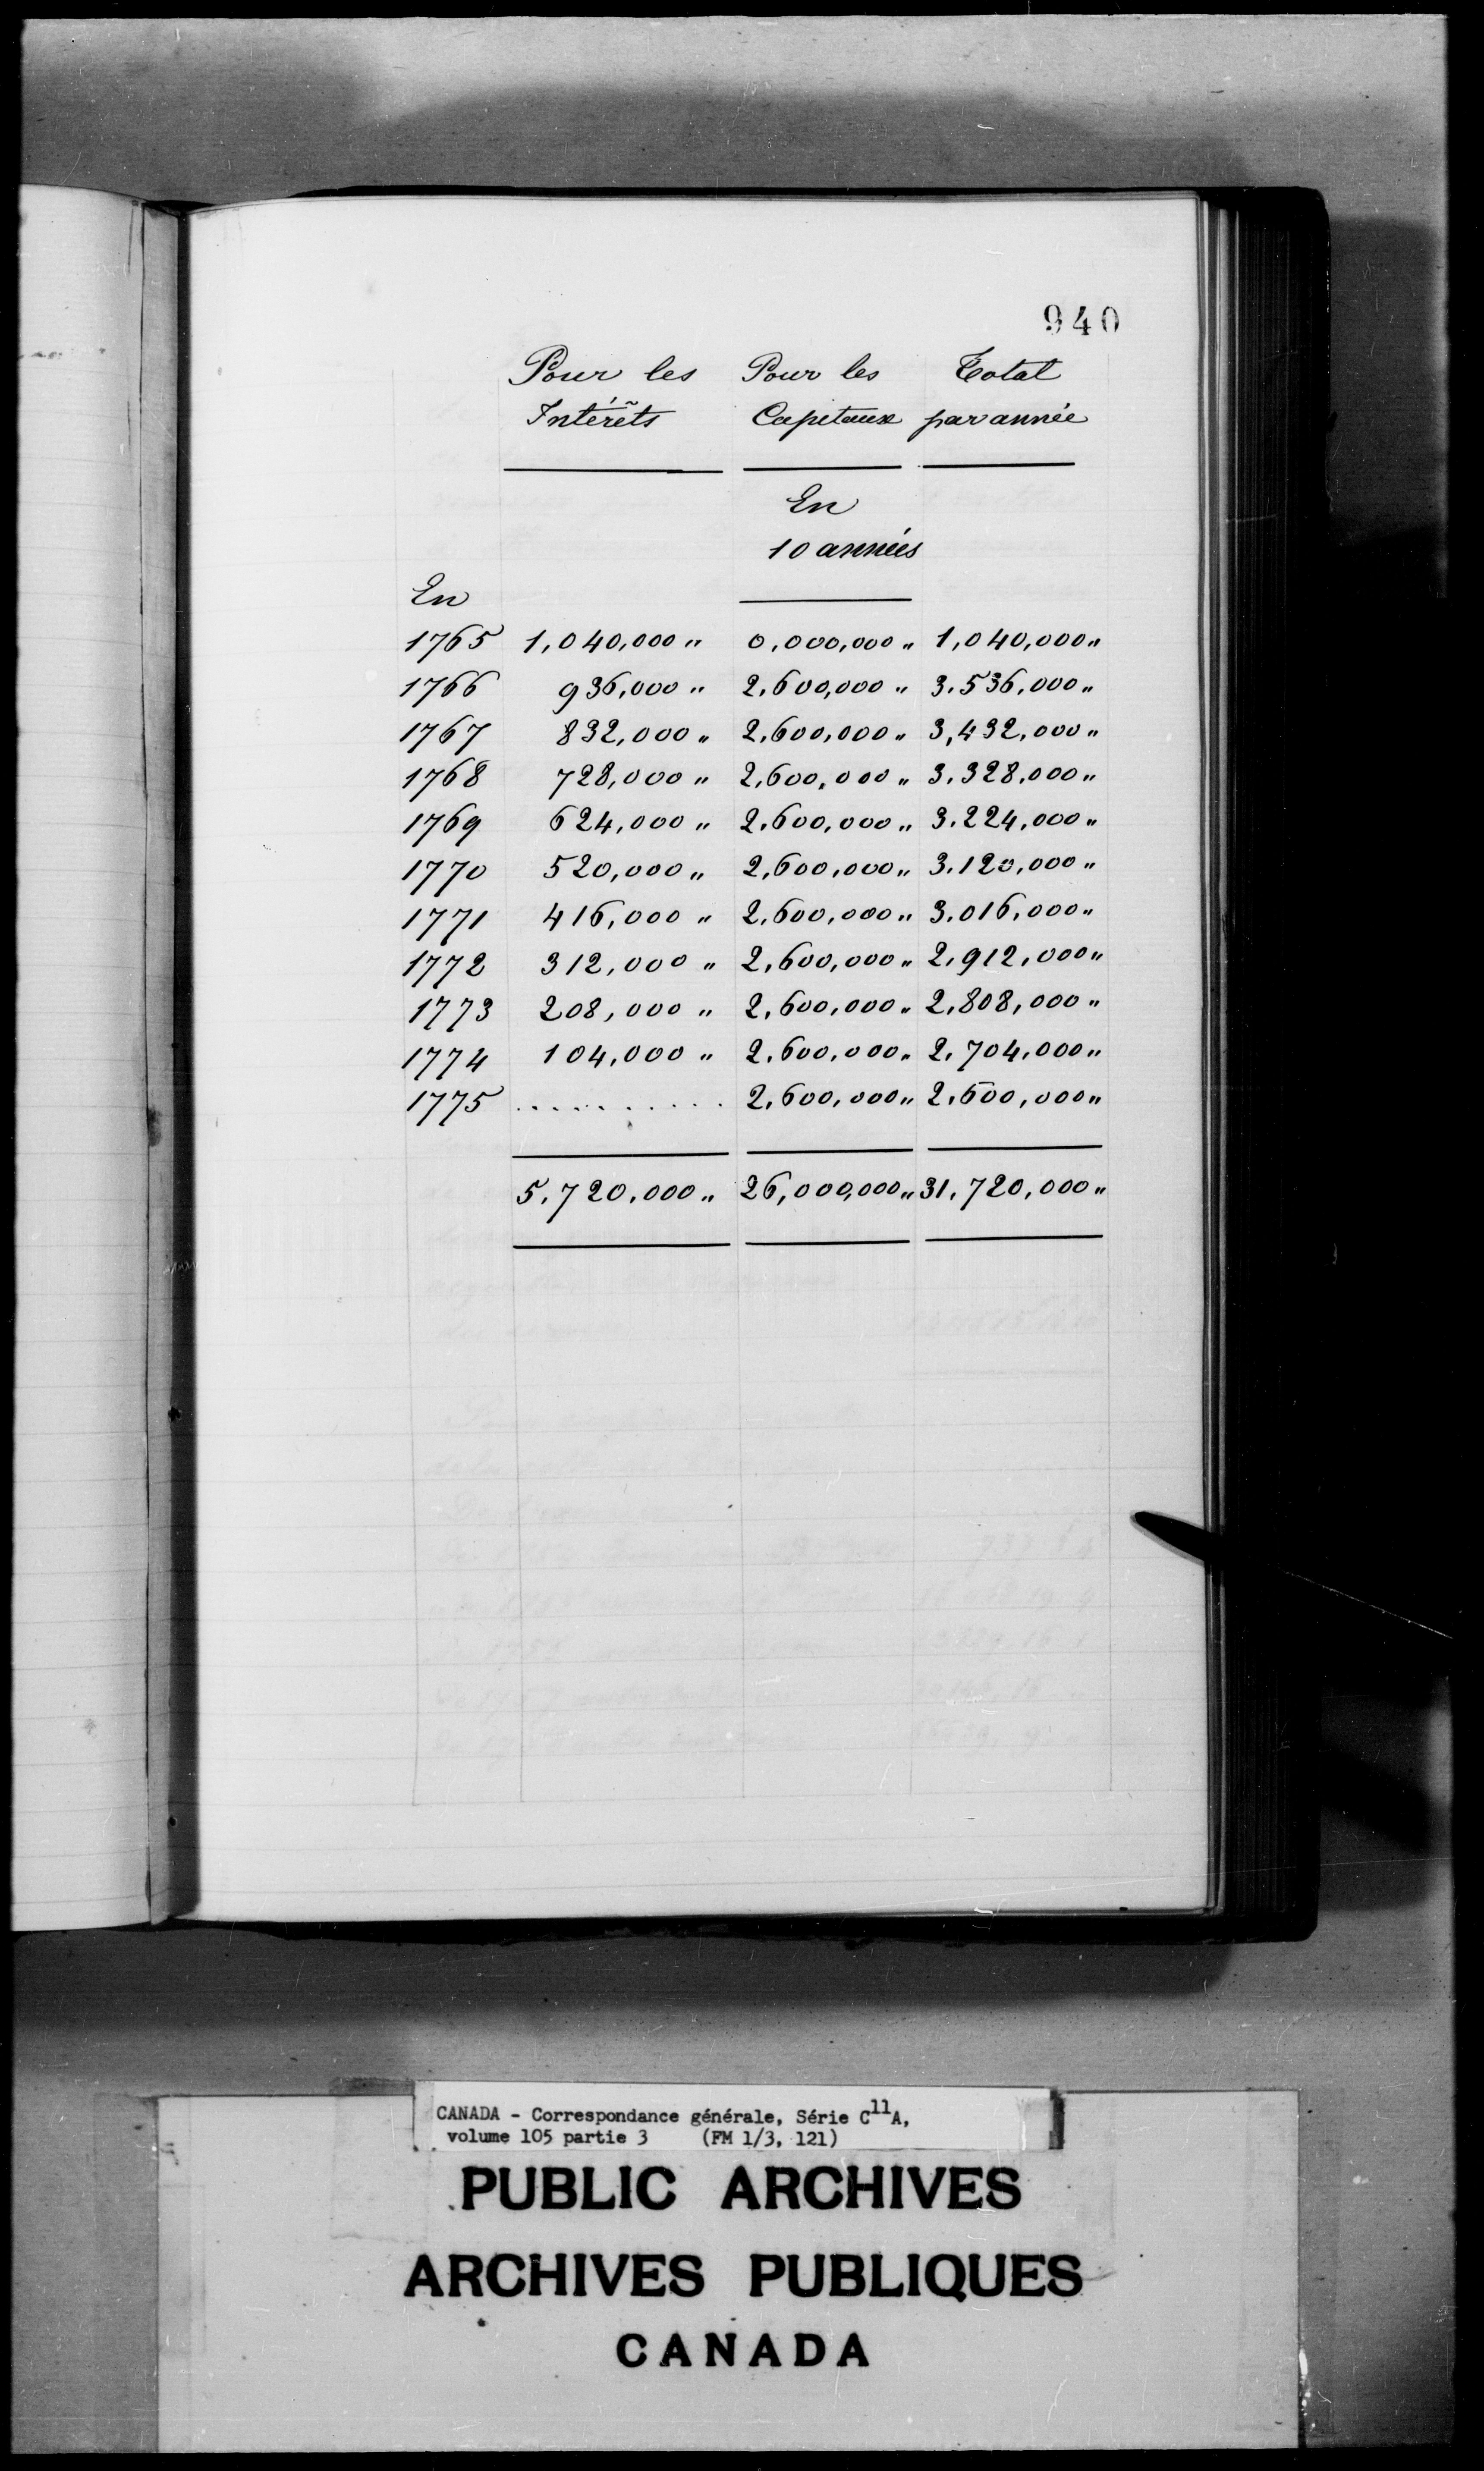 940
Pour les Pour les Total
Intérêts Capitaux par année
En
10 années
En
1765 1,040,000 " 0,000,000 " 1,040,000 "
1766 936,000 " 2,600,000 " 3.536,000 "
1767 832,000 " 2,600,000 " 3,432,000 "
1768 728,000 " 2,600,000 " 3.328,000 "
1769 624,000 " 2.600,000 " 3.224,000 "
1770 520,000 " 2,600,000 " 3.120,000 "
1771 416,000 " 2,600,000 " 3.016,000 "
1772 312,000 " 2,600,000 " 2,912,000 "
1773 208,000 " 2,600,000 " 2,808,000 "
1774 104,000 " 2,600,000 " 2,704,000 "
1775 .......... 2,600,000 " 2,600,000 "
5,720,000 " 26,000,000 " 31,720,000 "
CANADA - Correspondance générale, Série C11A,
volume 105 partie 3 (FM 1/3, 121)
PUBLIC ARCHIVES
ARCHIVES PUBLIQUES
CANADA